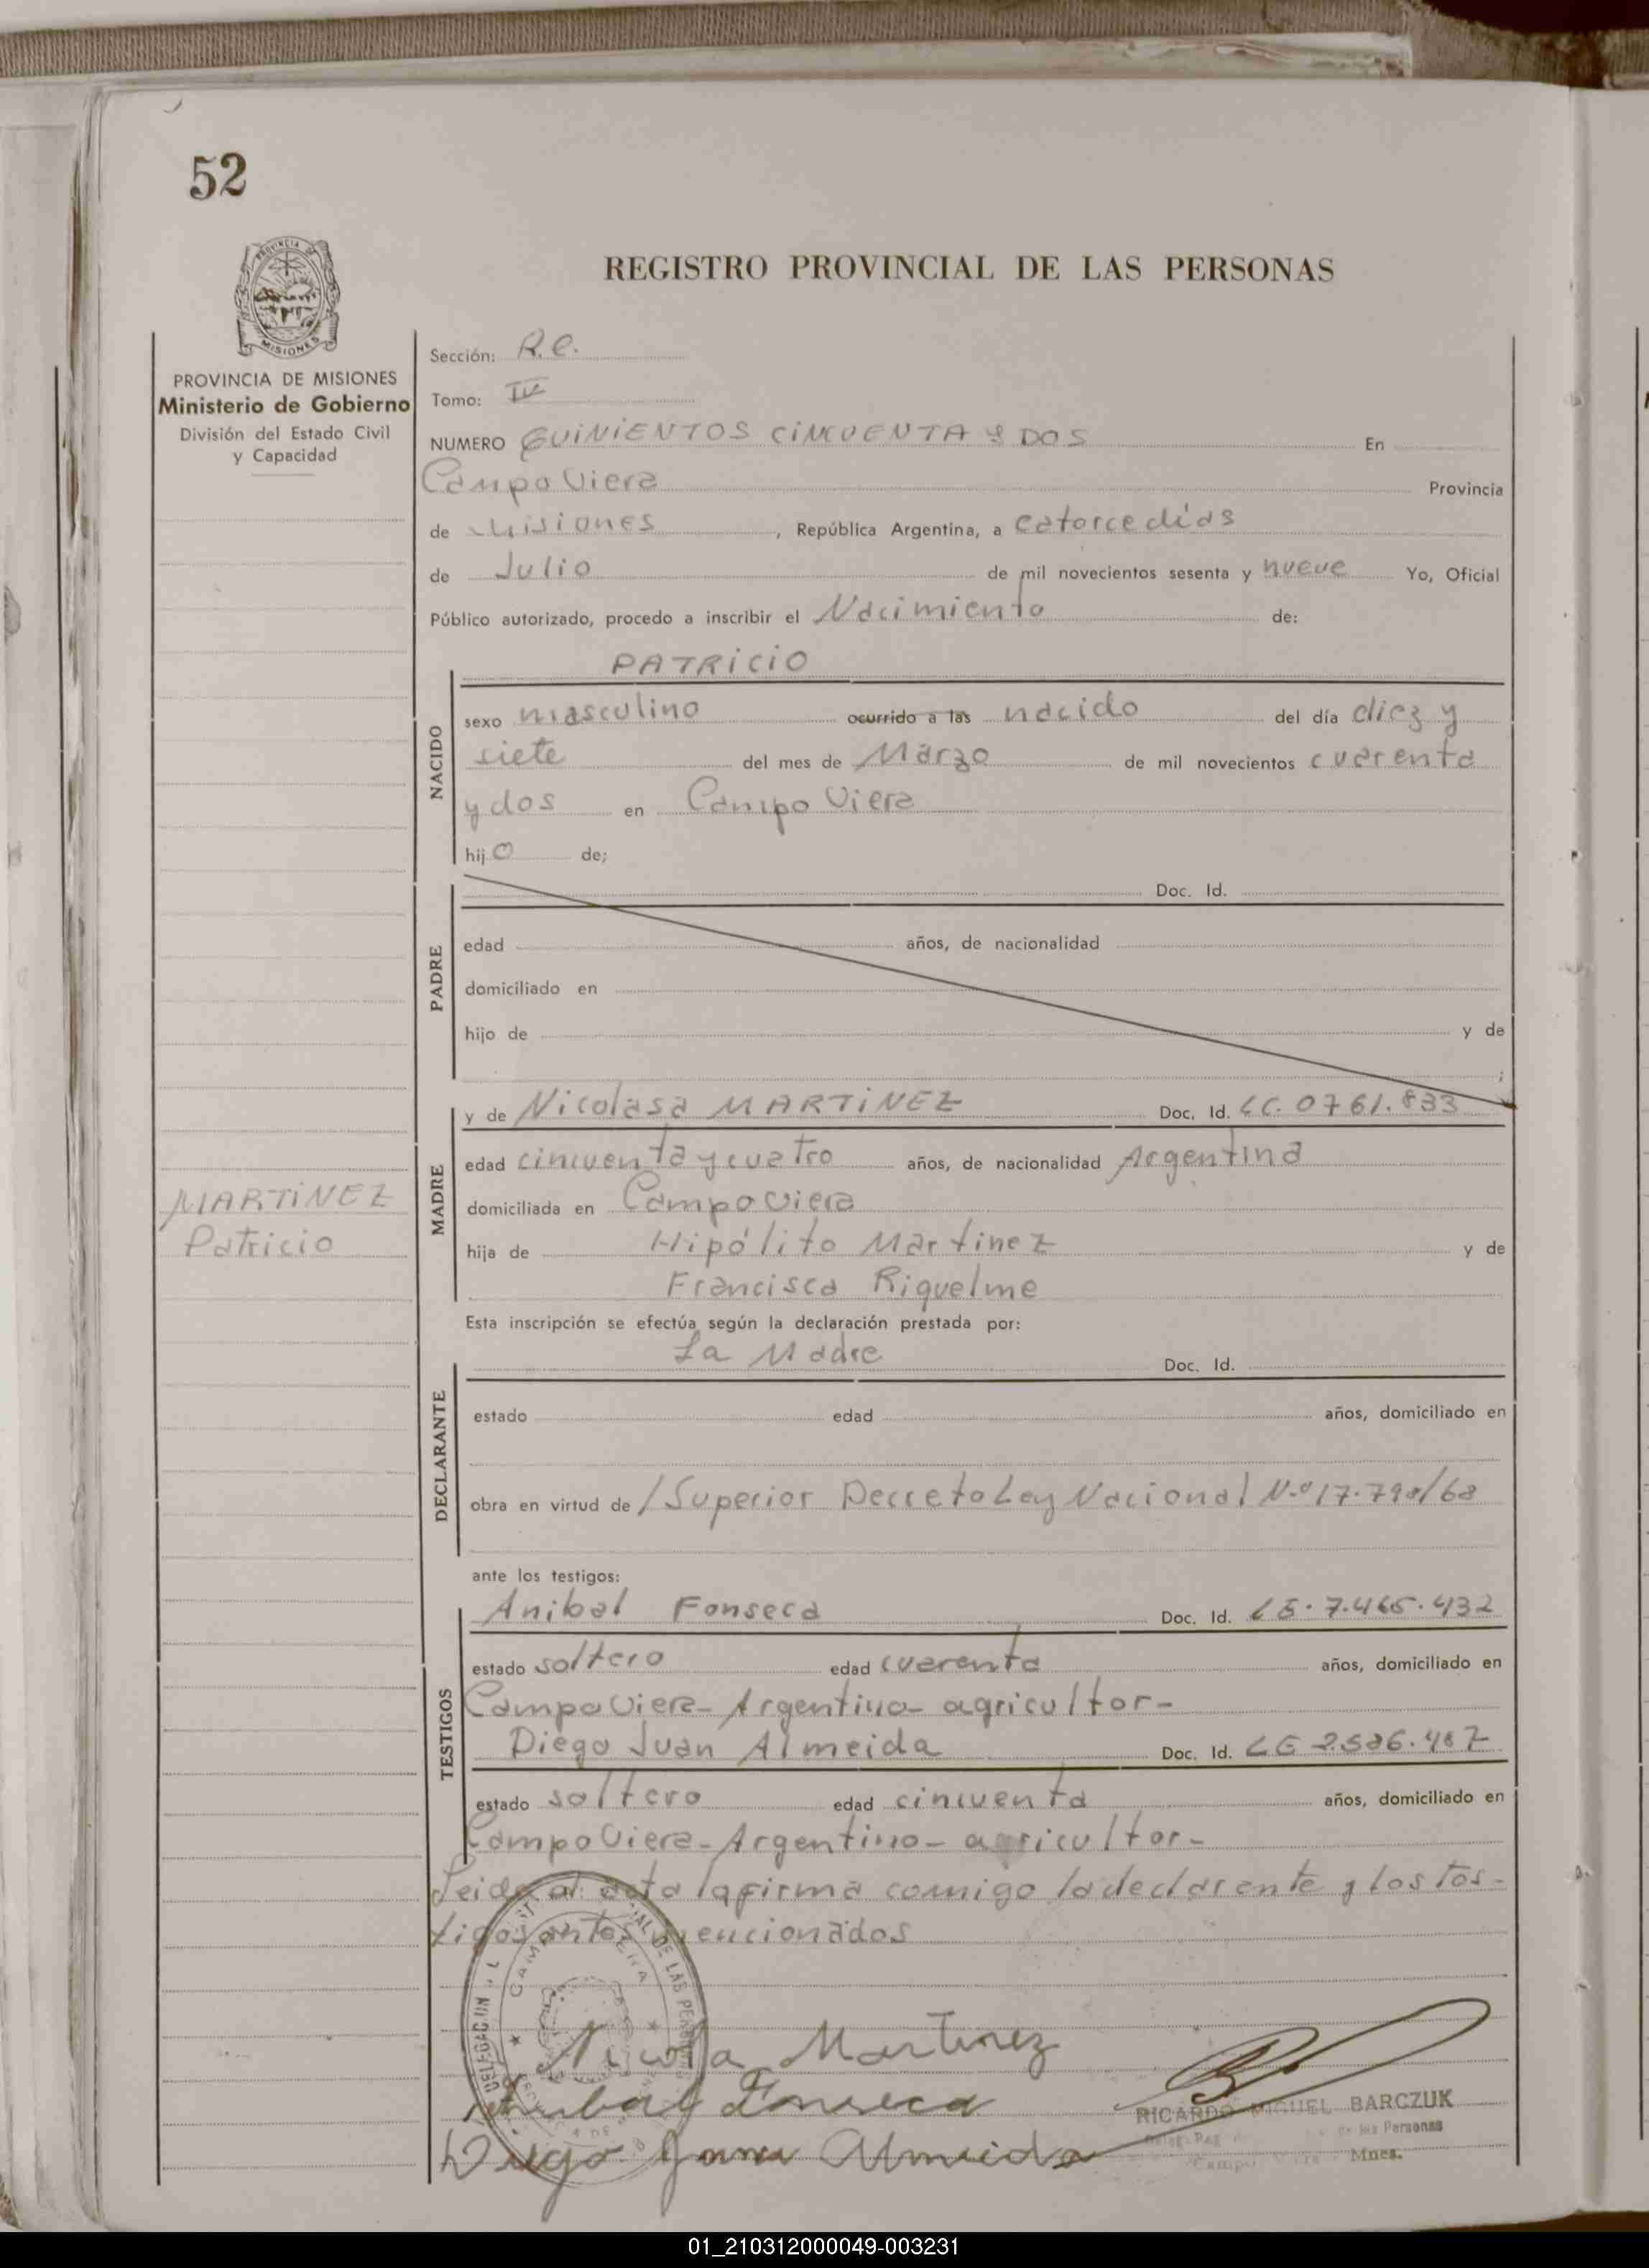 52
PROVINCIA DE MISIONES
REGISTRO PROVINCIAL DE LAS PERSONAS
PROVINCIA DE MISIONES
Ministerio de Gobierno
División del Estado Civil
y Capacidad
Sección: R.C.
Tomo: IV
NUMERO QUINIENTOS CINCUENTA Y DOS En
Campo Viera Provincia
de Misiones, República Argentina, a catorce días
de Julio de mil novecientos sesenta y nueve Yo, Oficial
Público autorizado, procedo a inscribir el Nacimiento de:
NACIDO
PATRICIO
sexo masculino ocurrido a las nacido del día diez y
siete del mes de Marzo de mil novecientos cuarenta
y dos en Campo Viera
hijo de;
PADRE
Doc. Id.
edad años, de nacionalidad
domiciliado en
hijo de y de
;
MADRE
y de Nicolasa MARTiNEZ Doc. Id. LC. 0761.833
edad cincuenta y cuatro años, de nacionalidad Argentina
domiciliada en Campo Viera
hija de Hipólito Martinez y de
Francisca Riquelme
MARTiNEZ
Patricio
Esta inscripción se efectúa según la declaración prestada por:
DECLARANTE
La Madre Doc. Id.
estado edad años, domiciliado en
obra en virtud de / Superior Decreto Ley Nacional N.º
ante los testigos:
TESTIGOS
Anibal Fonseca Doc. Id. LE. 7.465.432
estado soltero edad cuarenta años, domiciliado en
Campo Viera - Argentino - agricultor -
Diego Juan Almeida Doc. Id. LE
estado soltero edad cincuenta años, domiciliado en
Campo Viera - Argentino - agricultor -
Leida el acta la firma comigo la declarante y los tes-
tigos antes mencionados
DELEGACION DE LAS
CAMPO VIERA
Martinez
Anibal Fonseca
Diego Juan Almeida
RICARDO MIGUEL BARCZUK
Personas
Campo Viera Mnes.
01_210312000049-003231